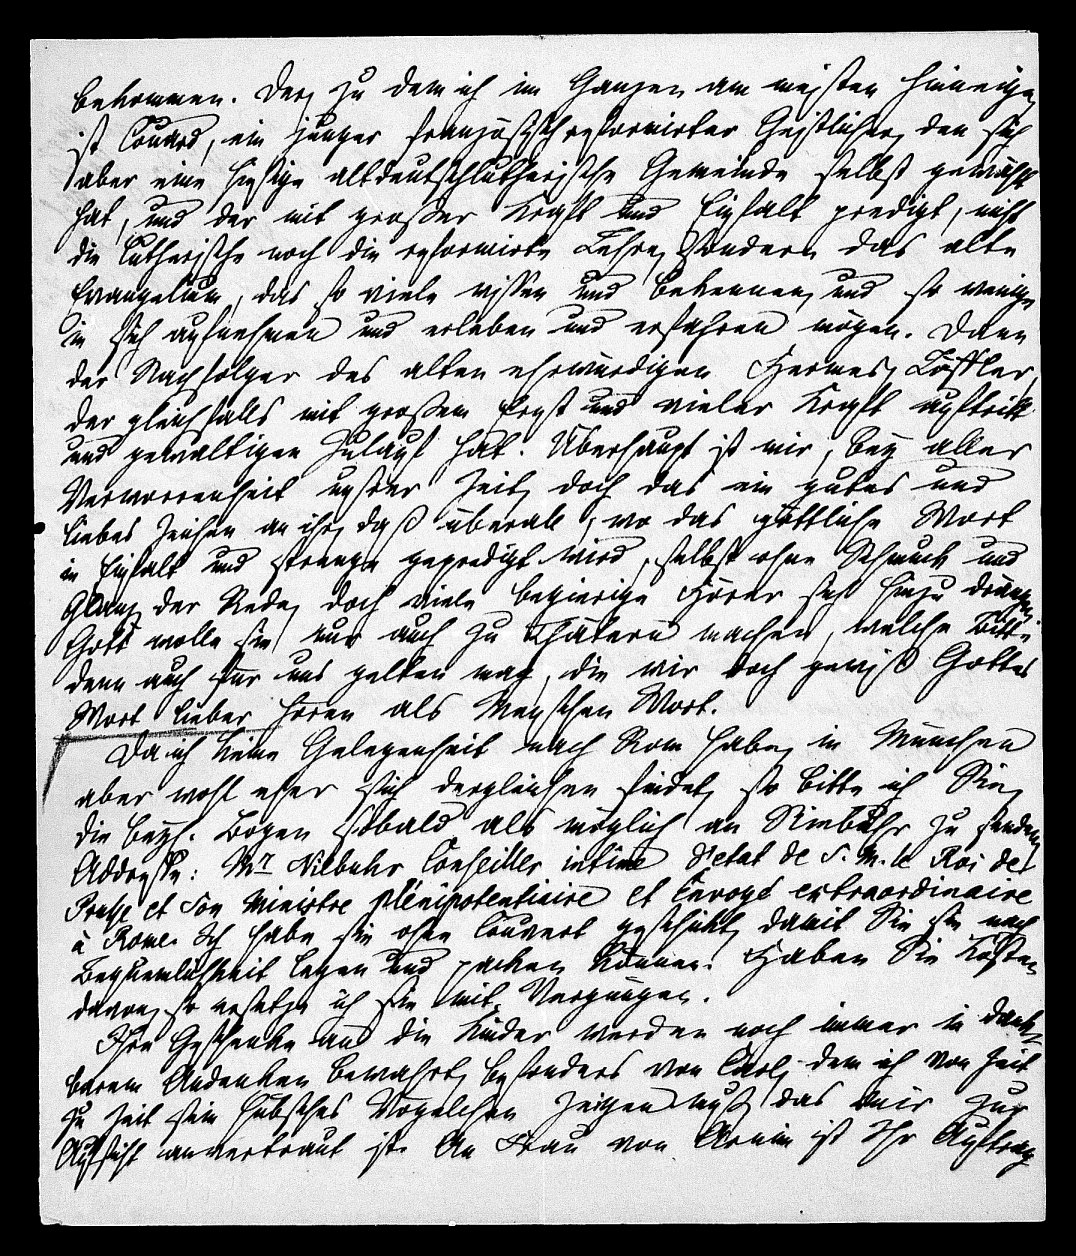 bekommen. Der, zu dem ich im Ganzen am meisten hinneige,
ist Couard, ein junger französischreformirter Geistlicher, den sich
aber eine hiesige altdeutschlutherische Gemeinde selbst gewählt
hat, und der mit großer Kraft und Einfalt predigt, nicht
die lutherische noch die reformirte Lehre, sondern das alte
Evangelium, das so viele wissen und bekennen, und so wenige
in sich aufnehmen und erleben und erfahren mögen. Dann
der Nachfolger des alten ehrwürdigen Hermes, Löffler,
der gleichfalls mit großem Ernst und vieler Kraft auftritt
und gewaltigen Zulauf hat. Überhaupt ist mir, bey aller
Verworrenheit unsrer Zeit, doch das ein gutes und
liebes Zeichen an ihr, daß überall, wo das göttliche Wort
in Einfalt und Strenge gepredigt wird, selbst ohne Schmuck und
Glanz der Rede, doch viele begierige Hörer sich hinzu drängen,
Gott wolle sie nur auch zu Thätern machen, welche Bitte
denn auch für uns gelten mag, die wir doch gewiß Gottes
Wort lieber hören als Menschen Wort.
Da ich keine Gelegenheit nach Rom habe, in München
aber wohl eher sich dergleichen findet, so bitte ich Sie,
die beyk. Bogen sobald als möglich an Niebuhr zu senden,
Addresse: Mr Niebuhr Conseiller intime d'etat de S. M. le Roi de
Prusse et Son Ministre plénipotentiaire et Envoyé extraordinaire
à Rome. Ich habe sie ohne Couvert geschickt, damit Sie sie nach
Bequemlichkeit legen und packen können. Haben Sie Kosten
davon, so ersetze ich sie mit Vergnügen.
Ihre Geschenke an die Kinder werden noch immer in dank-
barem Andenken bewahrt, besonders von Carl, dem ich von Zeit
zu Zeit sein hübsches Vögelchen zeigen muß, das mir zur
Aufsicht anvertraut ist. An Frau von Arnim ist Ihr Auftrag